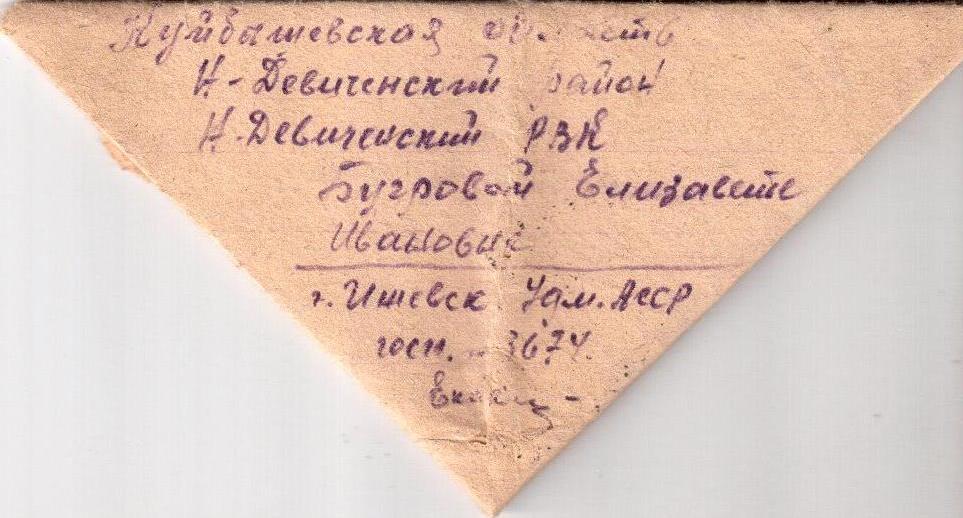 Куйбышевская область
Н-Девиченский район
Н.Девиченский РВК
Бугровой Елизавете
Ивановне
г. Ишевск Удм. АССР
госп. - 3674.